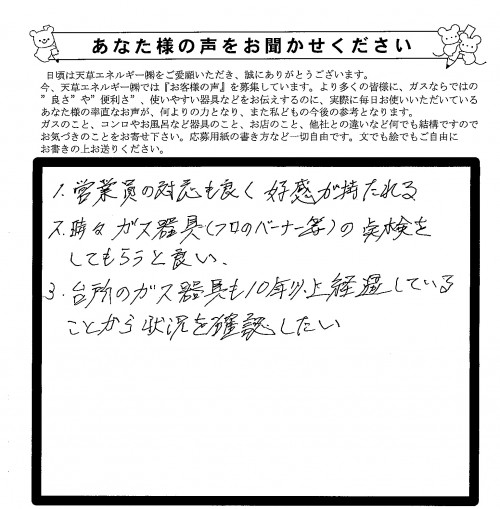 あなた様の声をお聞かせください
日頃は天草エネルギー㈱をご愛顧いただき、誠にありがとうございます。
今、天草エネルギー㈱では『お客様の声』を募集しています。より多くの皆様に、ガスならではの
”良さ”や”便利さ”、使いやすい器具などをお伝えするのに、実際に毎日お使いいただいている
あなた様の率直なお声が、何よりの力となり、また私どもの今後の参考となります。
ガスのこと、コンロやお風呂など器具のこと、お店のこと、他社との違いなど何でも結構ですので
お気づきのことをお寄せ下さい。応募用紙の書き方など一切自由です。文でも絵でもご自由に
お書きの上お送りください。
1. 営業員の対応も良く 好感が持たれる
2. 時々 ガス器具(フロのバーナー等)の 点検を
してもらうと良い、
3. 台所のガス器具も10年以上経過している
ことから 状況を確認したい